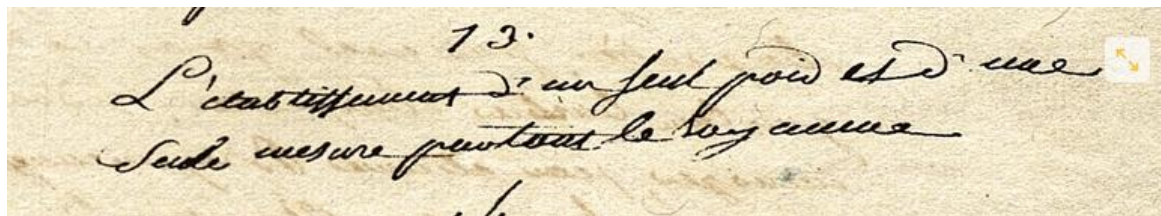 13.
L'etablissement d'un seul poid et d'une
Seule mesure partout le royaume